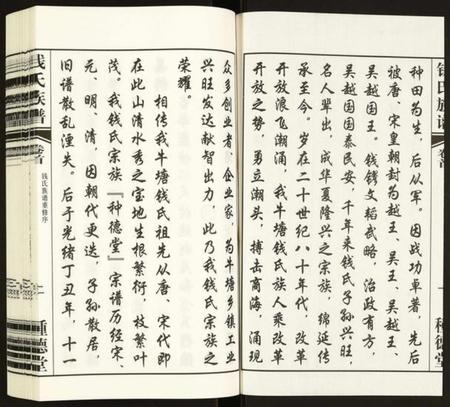 种田为生。后从军。因战功卓著。先后
被唐、宋皇朝封为越王、吴王、吴越王、
吴越国王。钱镠文韬武略。治政有方，
吴越国国泰民安，千年来钱氏子孙兴旺，
名人辈出，成华夏隆兴之宗族，绵延传
承至今。岁在二十世纪八十年代，改革
开放浪飞潮涌，我牛塘钱氏族人乘改革
开放之势，勇立潮头，搏击商海，涌现
种德堂
钱氏族谱
卷首
钱氏族谱重修序
二
种德堂
众多创业者、企业家，为牛塘乡镇工业
兴旺发达献智出力，此乃我钱氏宗族之
荣耀。
相传我牛塘钱氏祖先从唐、宋代即
在此山清水秀之宝地生根繁衍，枝繁叶
茂。我钱氏宗族『种德堂』宗谱历经宋、
元、明、清，因朝代更迭，子孙散居，
旧谱散乱湮失。后于光绪丁丑年，十一